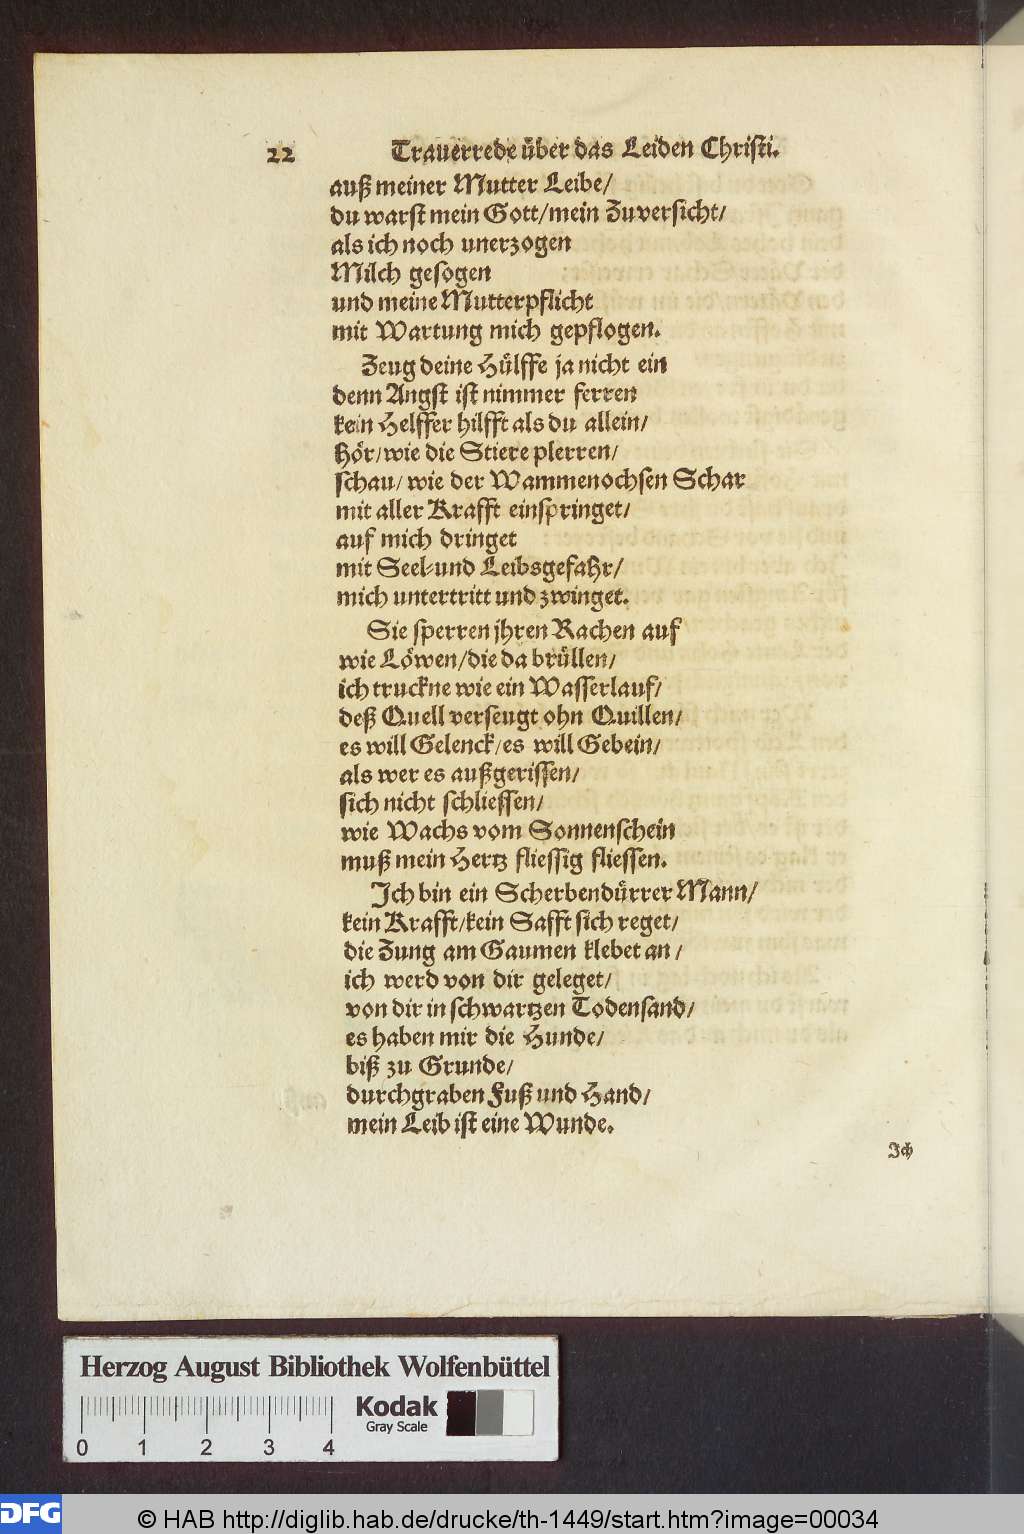 22 Trauerrede über das Leiden Christi.
auß meiner Mutter Leibe/
du warst mein Gott/mein Zuversicht/
als ich noch unerzogen
Milch gesogen
und meine Mutterpflicht
mit Wartung mich gepflogen.
Zeug deine Hülffe ja nicht ein
denn Angst ist nimmer ferren
kein Helffer hilfft als du allein/
Hör/wie die Stiere plerren/
schau/ wie der Wammenochsen Schar
mit aller Krafft einspringet/
auf mich dringet
mit Seel-und Leibsgefahr/
mich untertritt und zwinget.
Sie sperren jhren Rachen auf
wie Löwen/die da brüllen/
ich truckne wie ein Wasserlauf/
deß Quell verseugt ohn Quillen/
es will Gelenck/es will Gebein/
als wer es außgerissen/
sich nicht schliessen/
wie Wachs vom Sonnenschein
muß mein Hertz fliessig fliessen.
Ich bin ein Scherbendürrer Mann/
kein Krafft/kein Safft sich reget/
die Zung am Gaumen klebet an/
ich werd von dir geleget/
von dir in schwartzen Todensand/
es haben mir die Hunde/
biß zu Grunde/
durchgraben Fuß und Hand/
mein Leib ist eine Wunde.
Ich
Herzog August Bibliothek Wolfenbüttel
Kodak
Gray Scale
0 1 2 3 4
DFG © HAB http://diglib.hab.de/drucke/th-1449/start.htm?image=00034